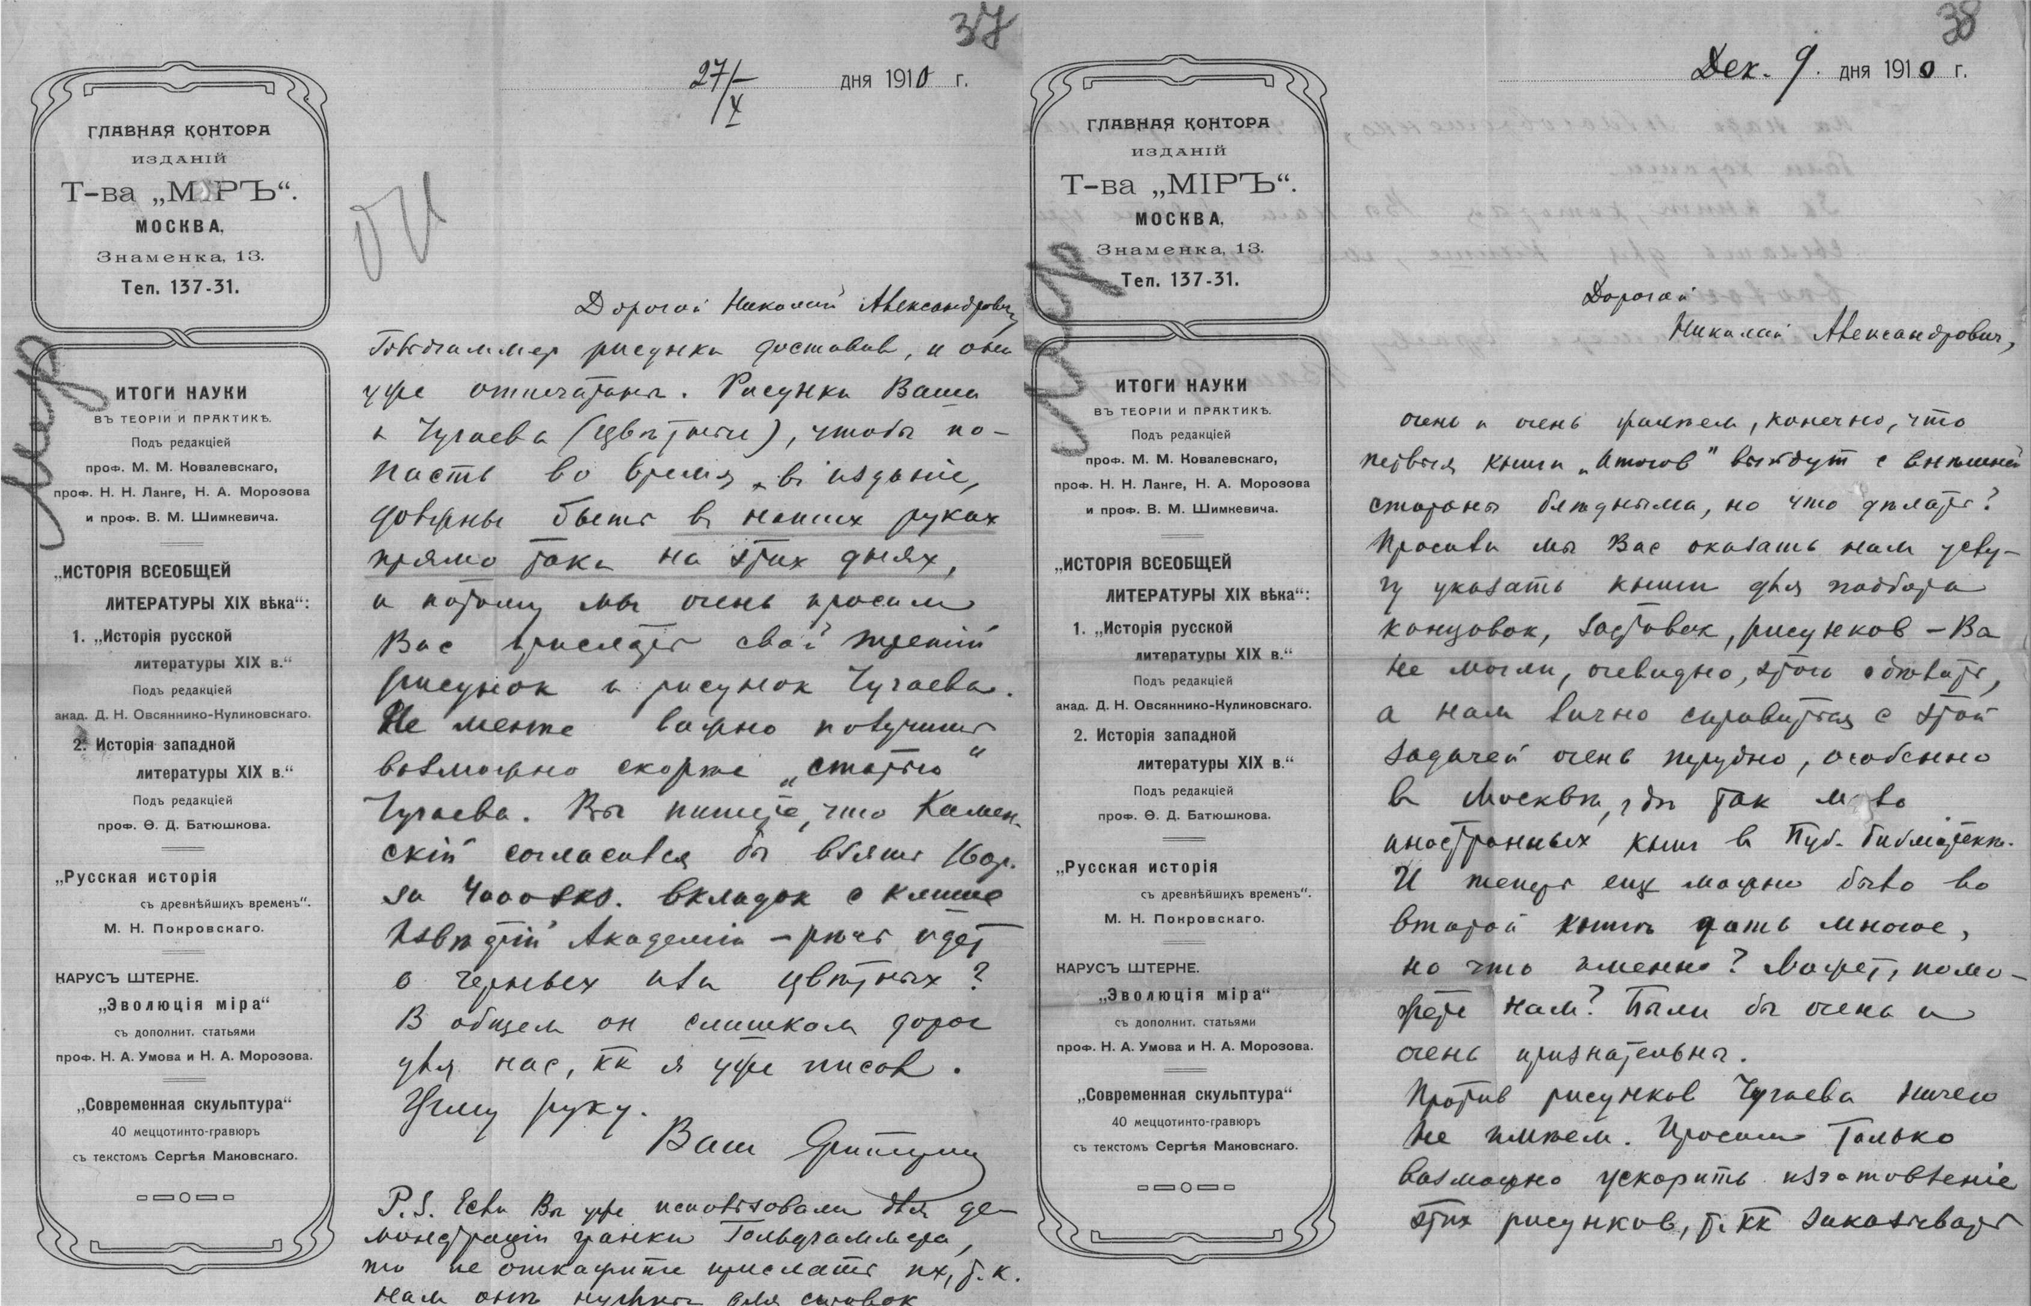 37
27/X дня 1910 г.
ГЛАВНАЯ КОНТОРА
ИЗДАНІЙ
Т-ва „МІРЪ“.
МОСКВА,
Знаменка, 13.
Тел. 137-31.
ИТОГИ НАУКИ
ВЪ ТЕОРІИ И ПРАКТИКѢ.
Подъ редакціей
проф. М. М. Ковалевскаго,
проф. Н. Н. Ланге, Н. А. Морозова
и проф. В. М. Шимкевича.
„ИСТОРІЯ ВСЕОБЩЕЙ
ЛИТЕРАТУРЫ XIX вѣка“:
1. „Исторія русской
литературы XIX в.“
Подъ редакціей
акад. Д. Н. Овсяннико-Куликовскаго.
2. Исторія западной
литературы XIX в.“
Подъ редакціей
проф. Ѳ. Д. Батюшкова.
„Русская исторія
съ древнѣйшихъ временъ“.
М. Н. Покровскаго.
КАРУСЪ ШТЕРНЕ.
„Эволюція міра“
съ дополнит. статьями
проф. Н. А. Умова и Н. А. Морозова.
„Современная скульптура“
40 меццотинто-гравюръ
съ текстомъ Сергѣя Маковскаго.
Дорогой Николай Александрович,
Гольдгаммер рисунки доставил, и они
уже отпечатаны. Рисунки Ваши
и Чугаева (цвѣтные), чтобы по-
пасть во время в изданіе,
должны быть в наших руках
прямо таки на этих днях,
и потому мы очень просим
Вас прислать свой третій
рисунок и рисунок Чугаева.
Не менѣе важно получить
возможно скорѣе „статью“
Чугаева. Вы пишете, что Камен-
скій согласился бы взять 160р.
за 4000 экз. вкладок с клише
Академіи – рѣчь идет
о черных или цвѣтных?
В общем он слишком дорог
для нас, кк я уже писал.
Жму руку.
Ваш
P.S. Если Вы уже использовали для де-
монстрацій гранки Гольдгаммера,
то не откажите прислать их, т.к.
нам онѣ нужны для справок
38
Дек. 9. дня 1910 г.
ГЛАВНАЯ КОНТОРА
ИЗДАНІЙ
Т-ва „МІРЪ“.
МОСКВА,
Знаменка, 13.
Тел. 137-31.
ИТОГИ НАУКИ
ВЪ ТЕОРІИ И ПРАКТИКѢ.
Подъ редакціей
проф. М. М. Ковалевскаго,
проф. Н. Н. Ланге, Н. А. Морозова
и проф. В. М. Шимкевича.
„ИСТОРІЯ ВСЕОБЩЕЙ
ЛИТЕРАТУРЫ XIX вѣка“:
1. „Исторія русской
литературы XIX в.“
Подъ редакціей
акад. Д. Н. Овсяннико-Куликовскаго.
2. Исторія западной
литературы XIX в.“
Подъ редакціей
проф. Ѳ. Д. Батюшкова.
„Русская исторія
съ древнѣйшихъ временъ“.
М. Н. Покровскаго.
КАРУСЪ ШТЕРНЕ.
„Эволюція міра“
съ дополнит. статьями
проф. Н. А. Умова и Н. А. Морозова.
„Современная скульптура“
40 меццотинто-гравюръ
съ текстомъ Сергѣя Маковскаго.
Дорогой
Николай Александрович,
очень и очень жалѣем, конечно, что
первыя книги „Итогов“ выйдут с внѣшней
стороны блѣдными, но что дѣлать?
Просили мы Вас оказать нам услу-
гу указать книги для подбора
концовок, заставок, рисунков – Вы
не могли, очевидно, этого сдѣлать,
а нам лично справиться с этой
задачей очень трудно, особенно
в Москвѣ, гдѣ так мало
иностранных книг в Пуб. библіотекѣ.
И теперь еще можно было во
второй книгѣ дать многое,
но что именно? Может, помо-
жете нам? Были бы очень и
очень признательны.
Против рисунков Чугаева ничего
не имѣем. Просим только
возможно ускорить изготовленіе
этих рисунков, т. кк заказывать